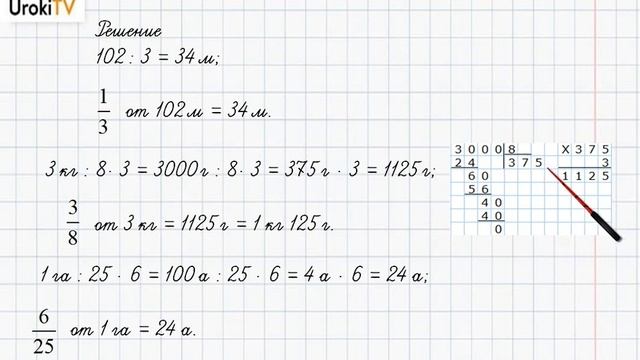 UrokiTV
Решение
102 : 3 = 34 м;
1/3 от 102 м = 34 м.
3 кг : 8 · 3 = 3000 г : 8 · 3 = 375 г · 3 = 1125 г;
3/8 от 3 кг = 1125 г = 1 кг 125 г.
1 га : 25 · 6 = 100 а : 25 · 6 = 4 а · 6 = 24 а;
6/25 от 1 га = 24 а.
3000 8
24 375
60
56
40
40
0
X 375
3
1125